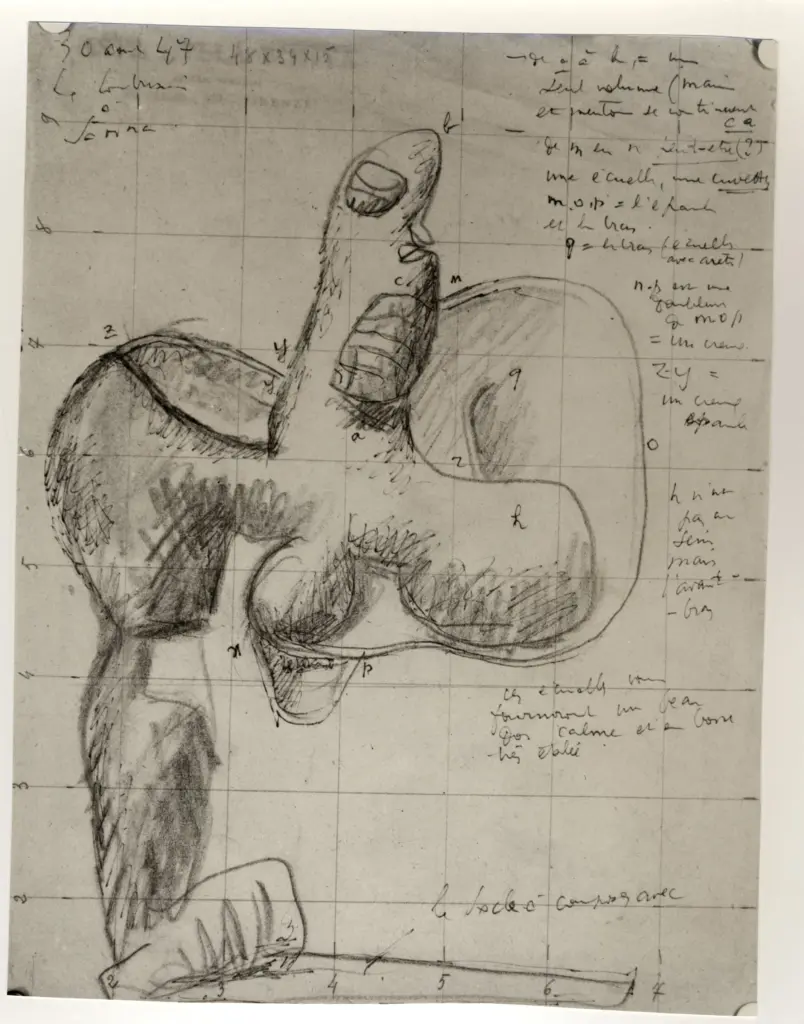 30 août 47
48 x 34 x 15
Le Corbusier
à
Savina
→ de a à h, = un
seul volume (main
et menton se continuent
ca
de m en n peut-être (?)
une écuelle, une cuvette
m.o.p = l'épaule
et le bras
q = le bras (écuelle
avec arête)
n-p est une
de m o p
= un creux
z-y =
un creux
h n'est
pas un
sein
mais
l'avant-
-bras
ces écuelles vous
fourniront un beau
jeu calme et en bosse
très
le socle à composer avec
b
c
m
z
y
y
q
o
a
r
h
n
p
9
8
7
6
5
4
3
2
2
3
4
5
6
7